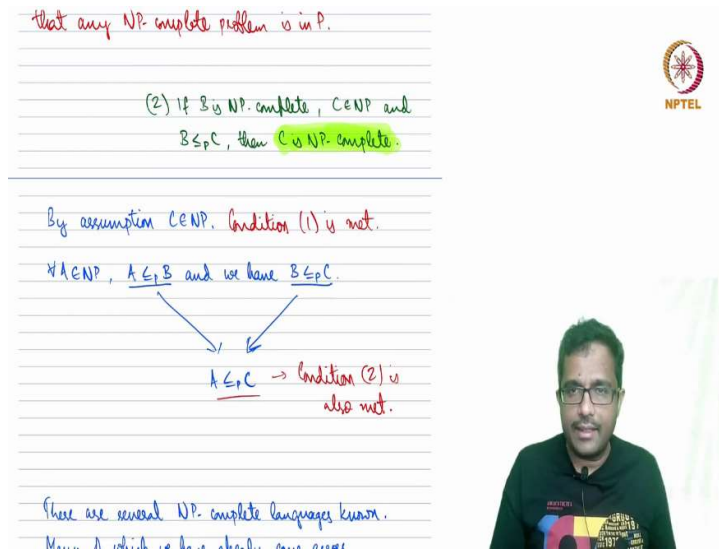 that any NP-complete problem is in P.
(2) If B is NP-complete, C∈NP and
B≤pC, then C is NP-complete.
By assumption C∈NP. Condition (1) is met.
∀A∈NP, A≤pB and we have B≤pC.
A≤pC → Condition (2) is
also met.
There are several NP-complete languages known.
NPTEL